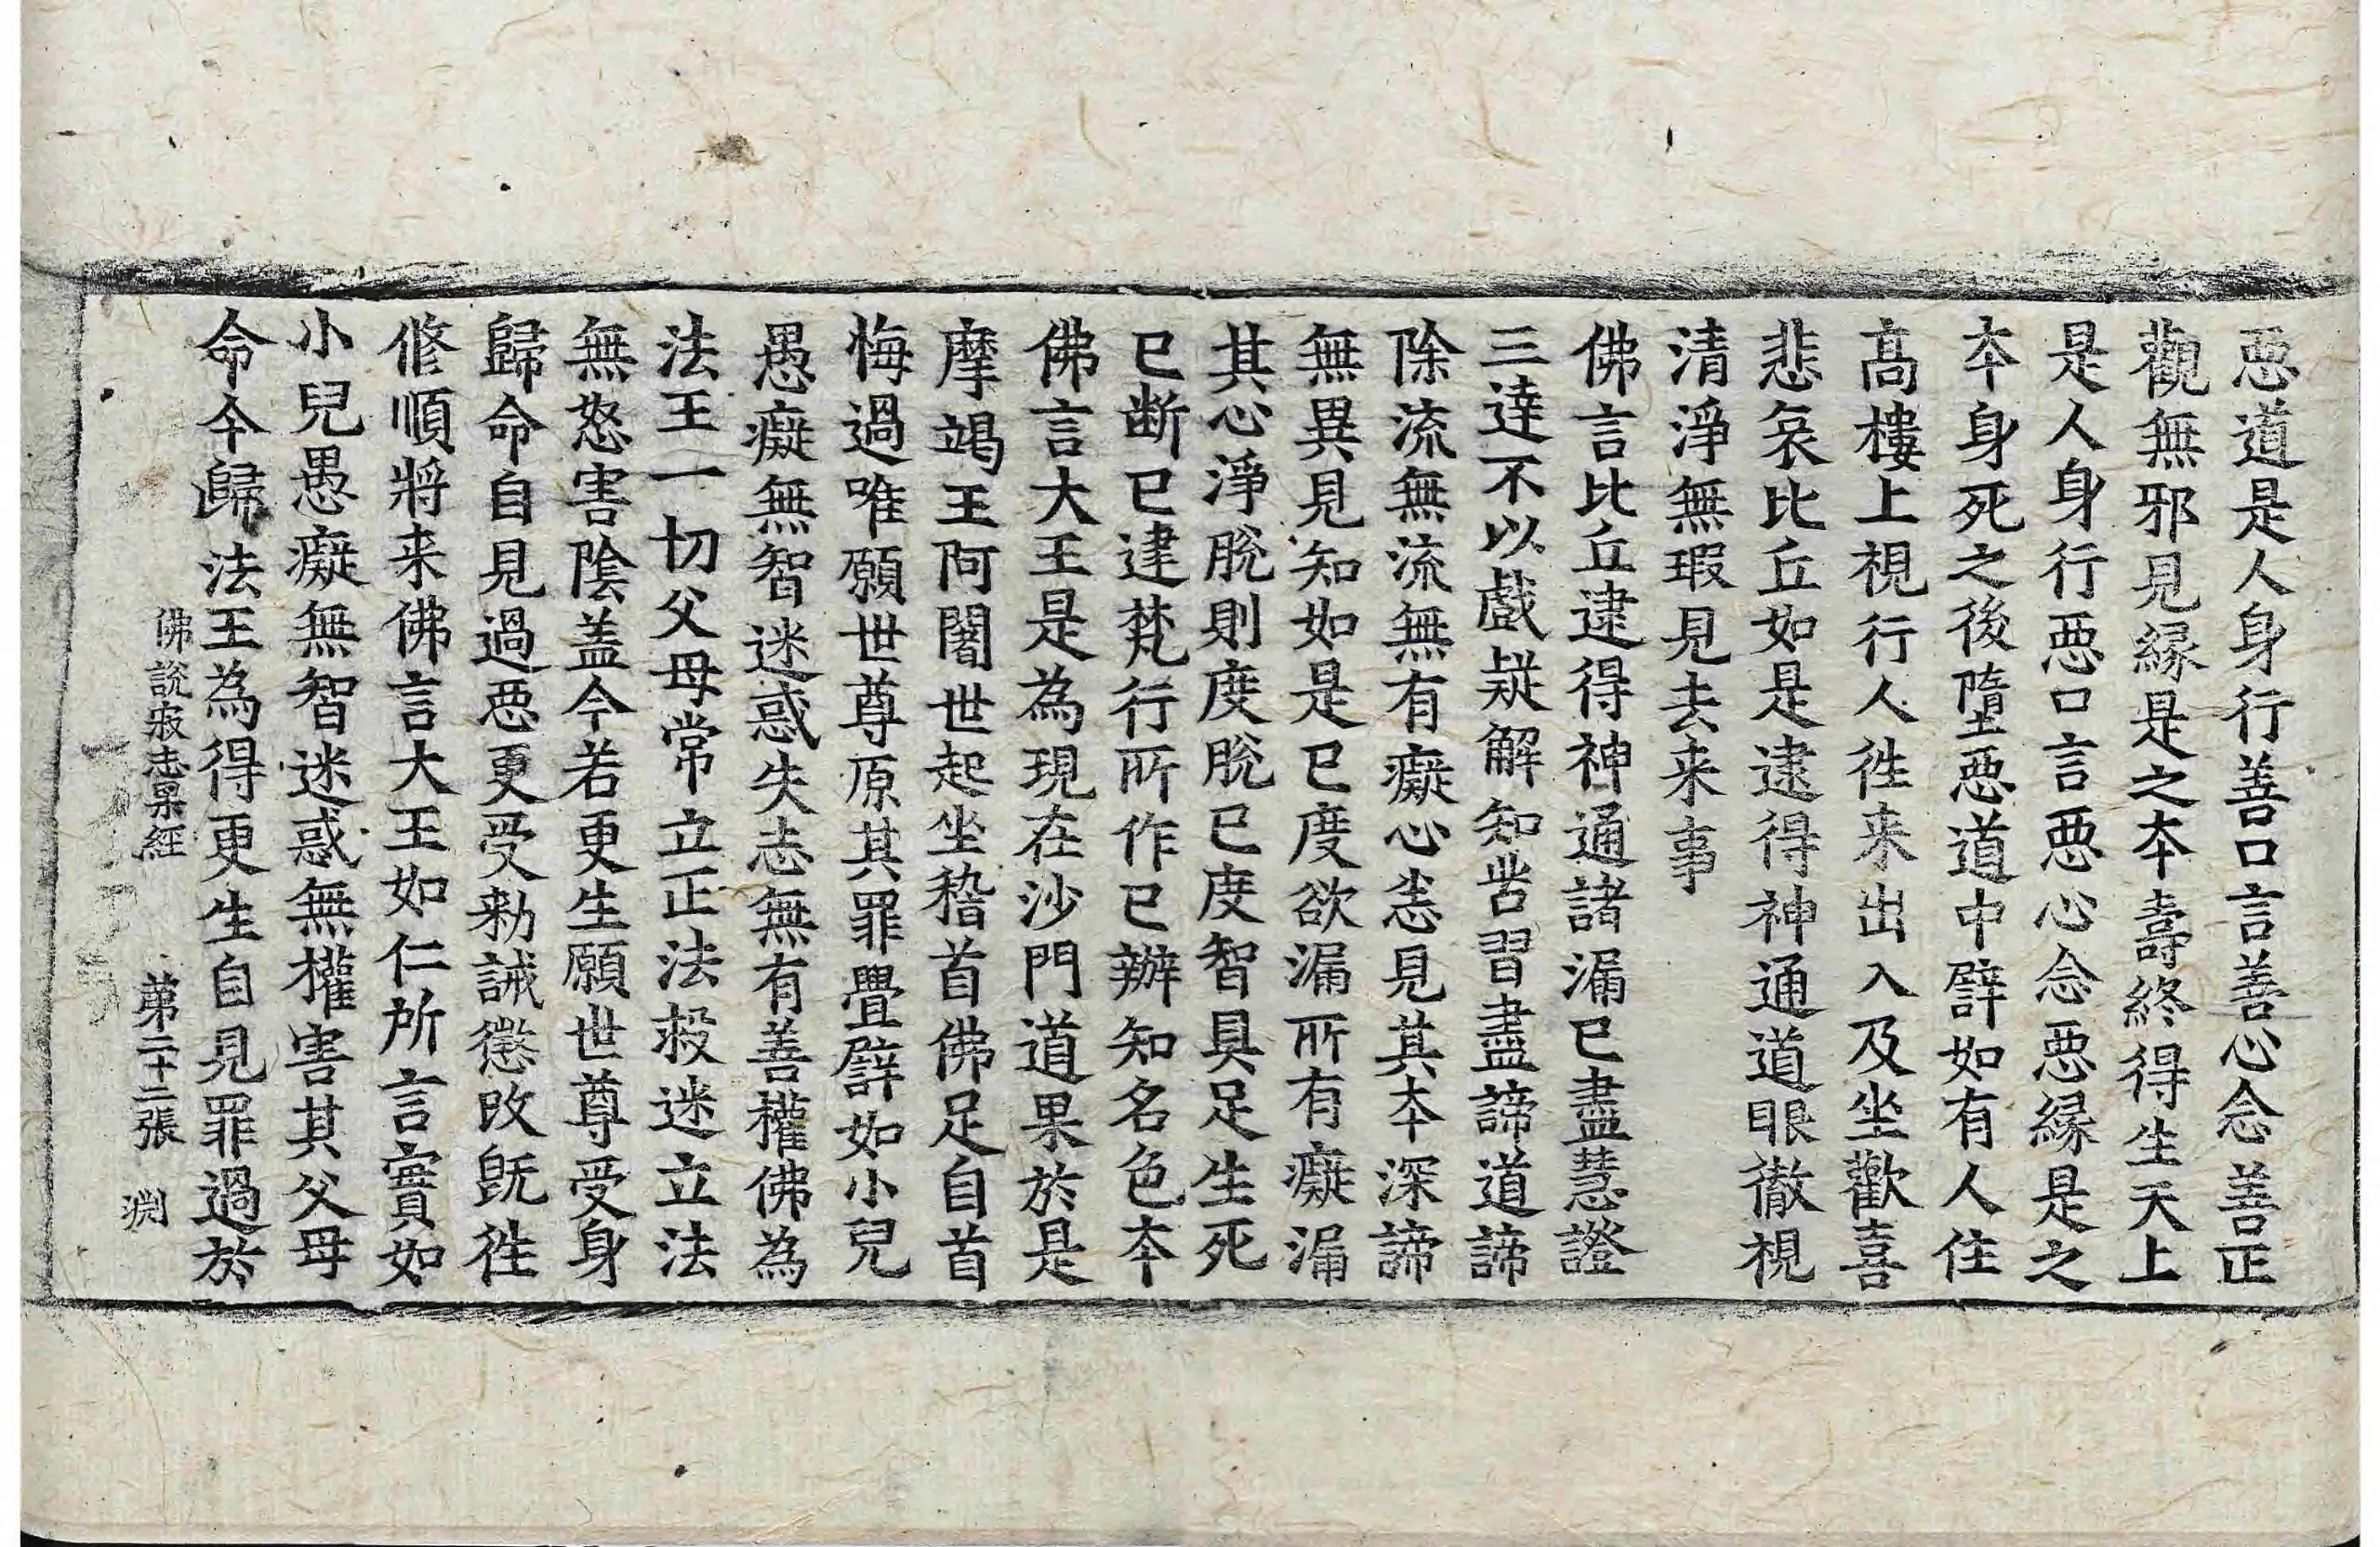 惡道是人身行善口言善心念善正
觀無邪見緣是之本壽終得生天上
是人身行惡口言惡心念惡緣是之
本身死之後墮惡道中譬如有人住
高樓上視行人往来出入及坐歡喜
悲哀比丘如是逮得神通道眼徹視
清淨無瑕見去来事
佛言比丘逮得神通諸漏已盡慧證
三達不以戲疑解知苦習盡諦道諦
除流無流無有癡心恚見其本深諦
無異見知如是已度欲漏所有癡漏
其心淨脫則度脫已度智具足生死
已断已建梵行所作已辦知名色本
佛言大王是為現在沙門道果於是
摩竭王阿闍世起坐稽首佛足自首
悔過唯願世尊原其罪舋譬如小兒
愚癡無智迷惑失志無有善權佛為
法王一切父母常立正法救迷立法
無怒害陰盖今若更生願世尊受身
歸命自見過惡更受勑誡懲改既往
修順將来佛言大王如仁所言實如
小兒愚癡無智迷惑無權害其父母
命今歸法王為得更生自見罪過於
佛說寂志果經 第二十二張 渕